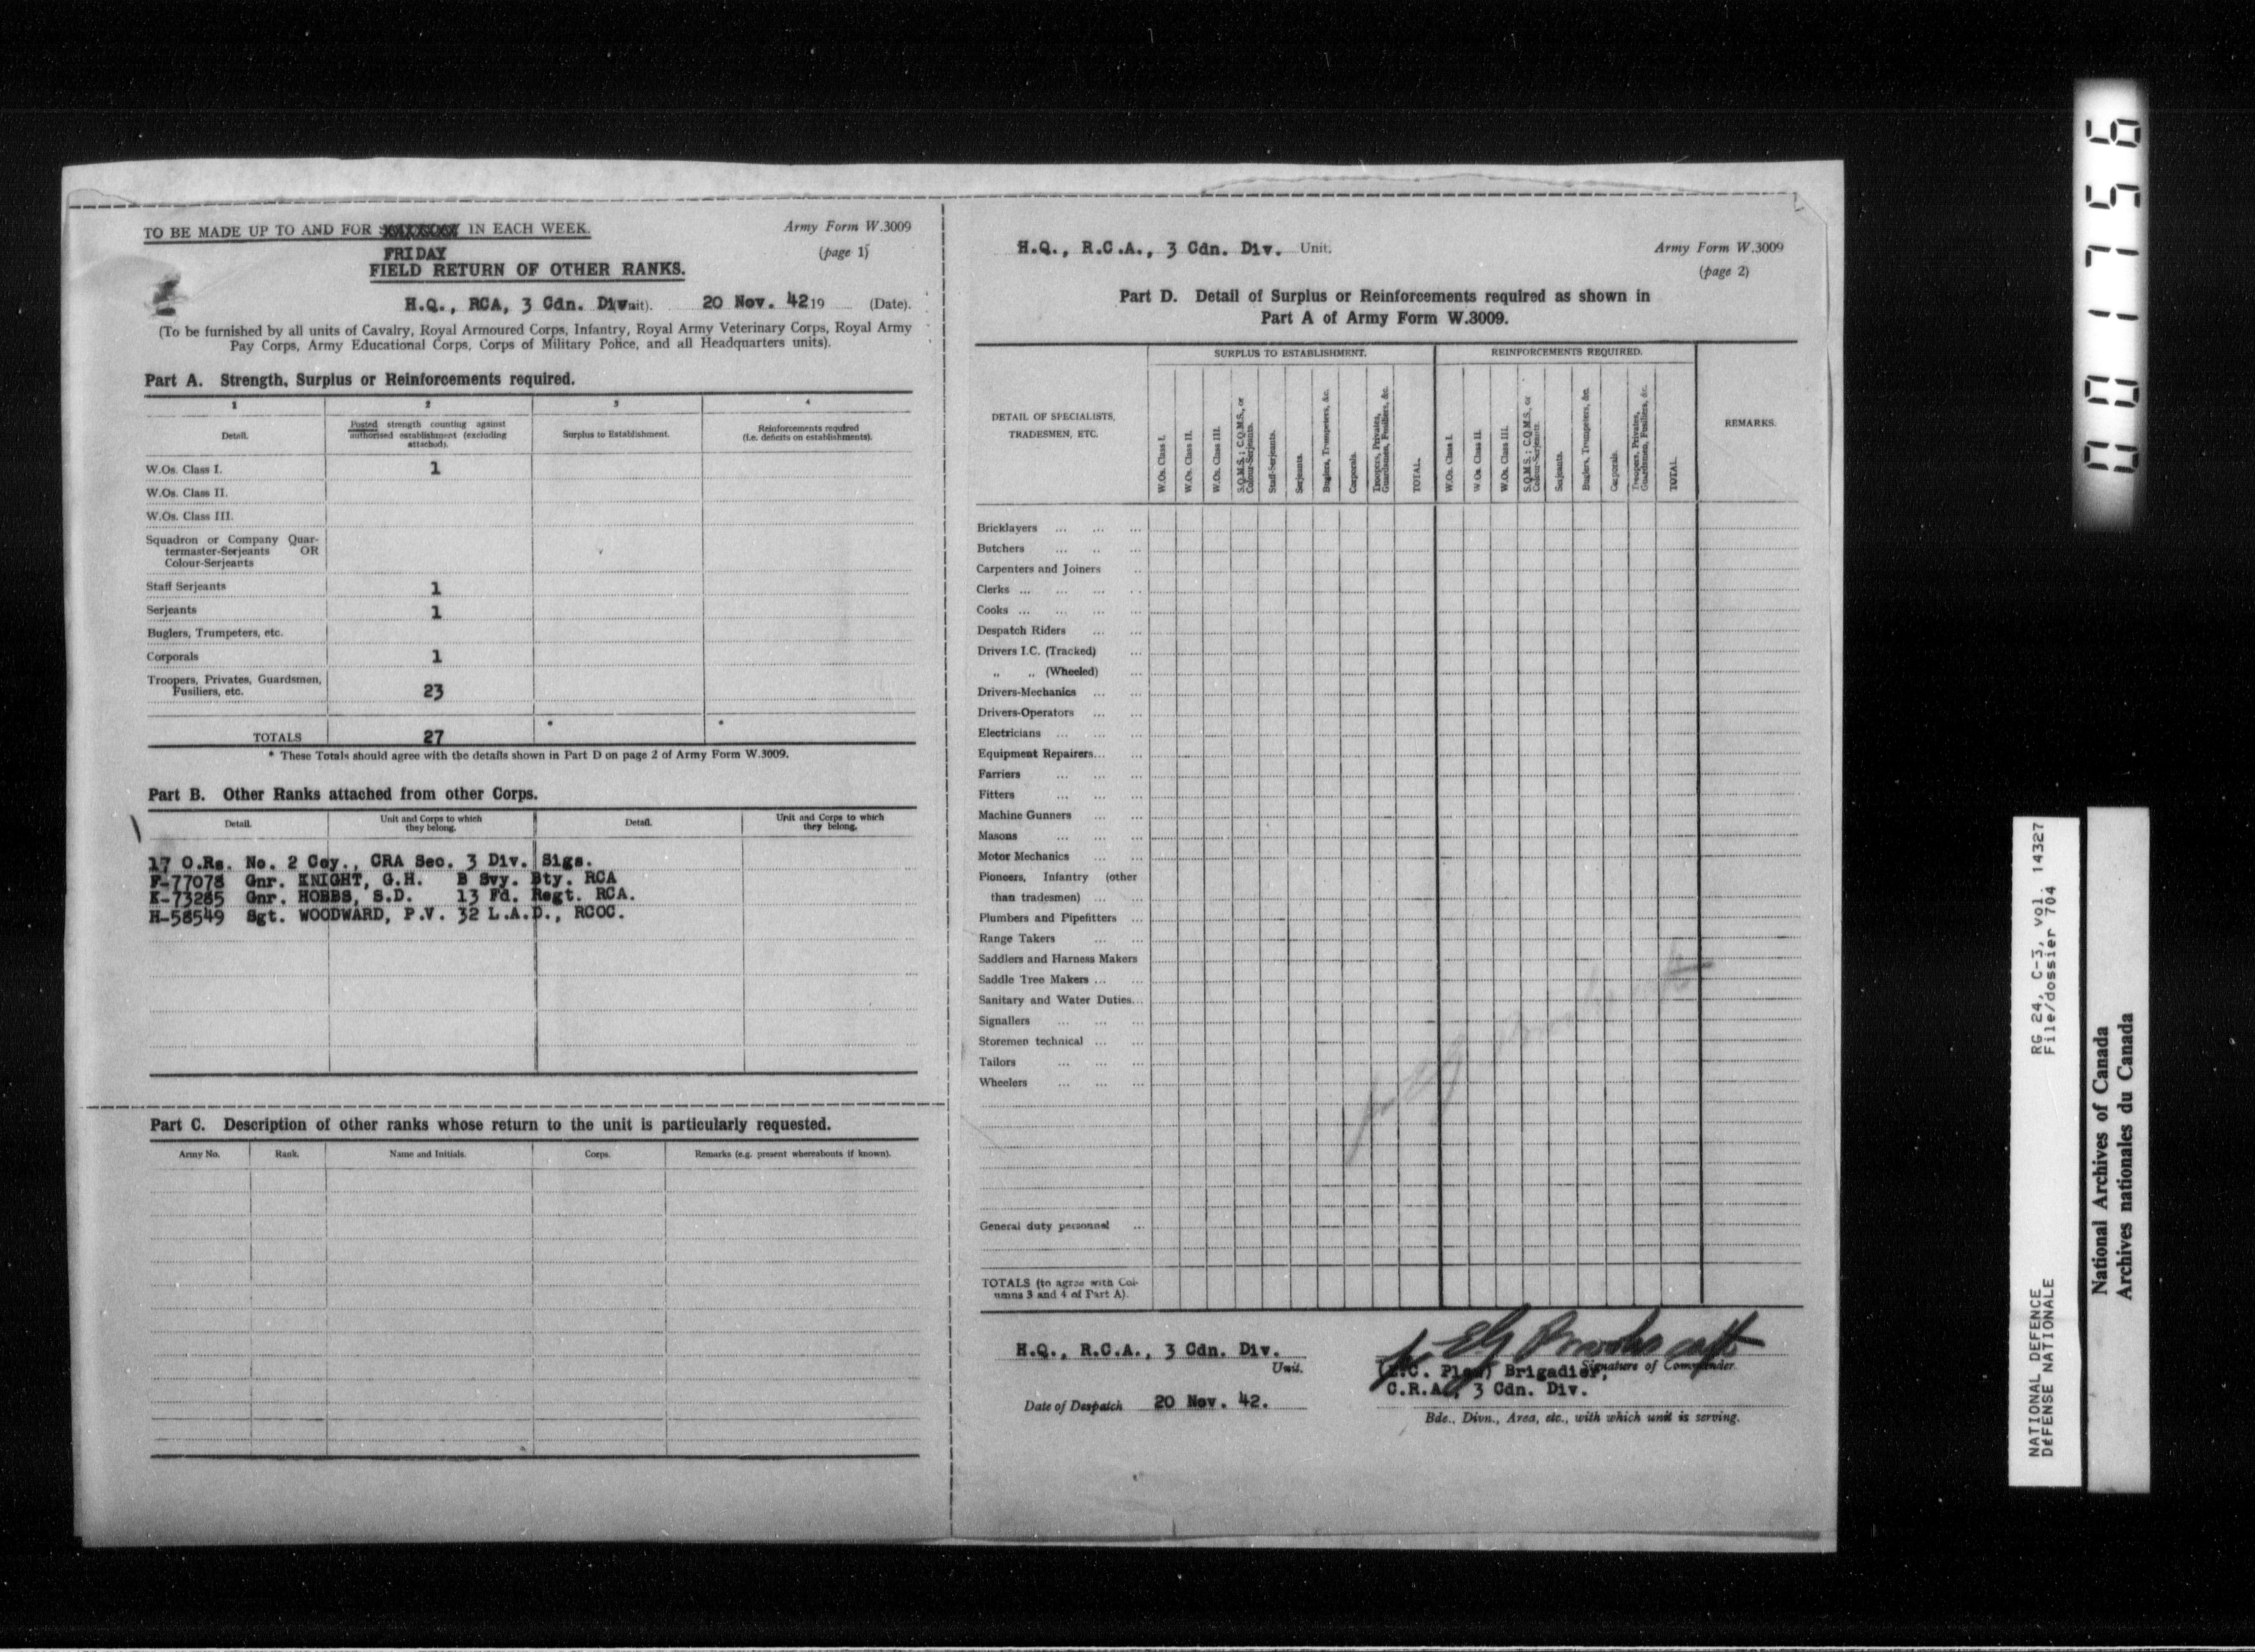 TO BE MADE UP TO AND FOR XXXXXXX IN EACH WEEK.
FRIDAY
Army Form W.3009
(page 1)
FIELD RETURN OF OTHER RANKS.
H.Q., RCA, 3 Cdn. Div nit). 20 Nov. 42 19 (Date).
(To be furnished by all units of Cavalry, Royal Armoured Corps, Infantry, Royal Army Veterinary Corps, Royal Army
Pay Corps, Army Educational Corps, Corps of Military Police, and all Headquarters units).
Part A. Strength, Surplus or Reinforcements required.
1 2 3 4
Detail. Posted strength counting against authorised establishment (excluding attached). Surplus to Establishment. Reinforcements required (i.e. deficits on establishments).
W.Os. Class I. 1
W.Os. Class II.
W.Os. Class III.
Squadron or Company Quar-
termaster-Serjeants OR
Colour-Serjeants
Staff Serjeants 1
Serjeants 1
Buglers, Trumpeters, etc.
Corporals 1
Troopers, Privates, Guardsmen,
Fusiliers, etc. 23
TOTALS 27 * *
* These Totals should agree with the details shown in Part D on page 2 of Army Form W.3009.
Part B. Other Ranks attached from other Corps.
Detail. Unit and Corps to which they belong. Detail. Unit and Corps to which they belong.
17 O.Rs. No. 2 Coy., CRA Sec. 3 Div. Sigs.
F-77078 Gnr. KNIGHT, G.H. B Svy. Bty. RCA
K-73285 Gnr. HOBBS, S.D. 13 Fd. Regt. RCA.
H-58549 Sgt. WOODWARD, P.V. 32 L.A.D., RCOC.
Part C. Description of other ranks whose return to the unit is particularly requested.
Army No. Rank. Name and Initials. Corps. Remarks (e.g. present whereabouts if known).
H.Q., R.C.A., 3 Cdn. Div. Unit.
Army Form W.3009
(page 2)
Part D. Detail of Surplus or Reinforcements required as shown in
Part A of Army Form W.3009.
SURPLUS TO ESTABLISHMENT. REINFORCEMENTS REQUIRED.
DETAIL OF SPECIALISTS,
TRADESMEN, ETC.
W.Os. Class I.
W.Os. Class II.
W.Os. Class III.
S.Q.M.S.; C.Q.M.S., or Colour-Serjeants.
Staff-Serjeants.
Serjeants.
Buglers, Trumpeters, &c.
Corporals.
Troopers, Privates, Guardsmen, Fusiliers, &c.
TOTAL.
W.Os. Class I.
W.Os. Class II.
W.Os. Class III.
S.Q.M.S.; C.Q.M.S., or Colour-Serjeants.
Serjeants.
Buglers, Trumpeters, &c.
Corporals.
Troopers, Privates, Guardsmen, Fusiliers, &c.
TOTAL.
REMARKS.
Bricklayers ... ... ...
Butchers ... .. ...
Carpenters and Joiners ..
Clerks ... ... ... ..
Cooks ... ... ... ...
Despatch Riders ... ...
Drivers I.C. (Tracked) ...
„ „ (Wheeled) ...
Drivers-Mechanics ... ...
Drivers-Operators ... ...
Electricians ... ... ...
Equipment Repairers... ...
Farriers ... ... ...
Fitters ... ... ...
Machine Gunners ... ...
Masons ... ... ...
Motor Mechanics ... ...
Pioneers, Infantry (other
than tradesmen) ... ...
Plumbers and Pipefitters ...
Range Takers ... ...
Saddlers and Harness Makers
Saddle Tree Makers ... ...
Sanitary and Water Duties...
Signallers ... ... ...
Storemen technical ... ...
Tailors ... ... ...
Wheelers ... ... ...
General duty personnel ...
TOTALS (to agree with Col-
umns 3 and 4 of Part A).
H.Q., R.C.A., 3 Cdn. Div.
Unit.
Signature of Commander.
Brigadier,
C.R.A., 3 Cdn. Div.
Date of Despatch 20 Nov. 42.
Bde., Divn., Area, etc., with which unit is serving.
001756
RG 24, C-3, vol. 14327
File/dossier 704
NATIONAL DEFENCE
DÉFENSE NATIONALE
National Archives of Canada
Archives nationales du Canada